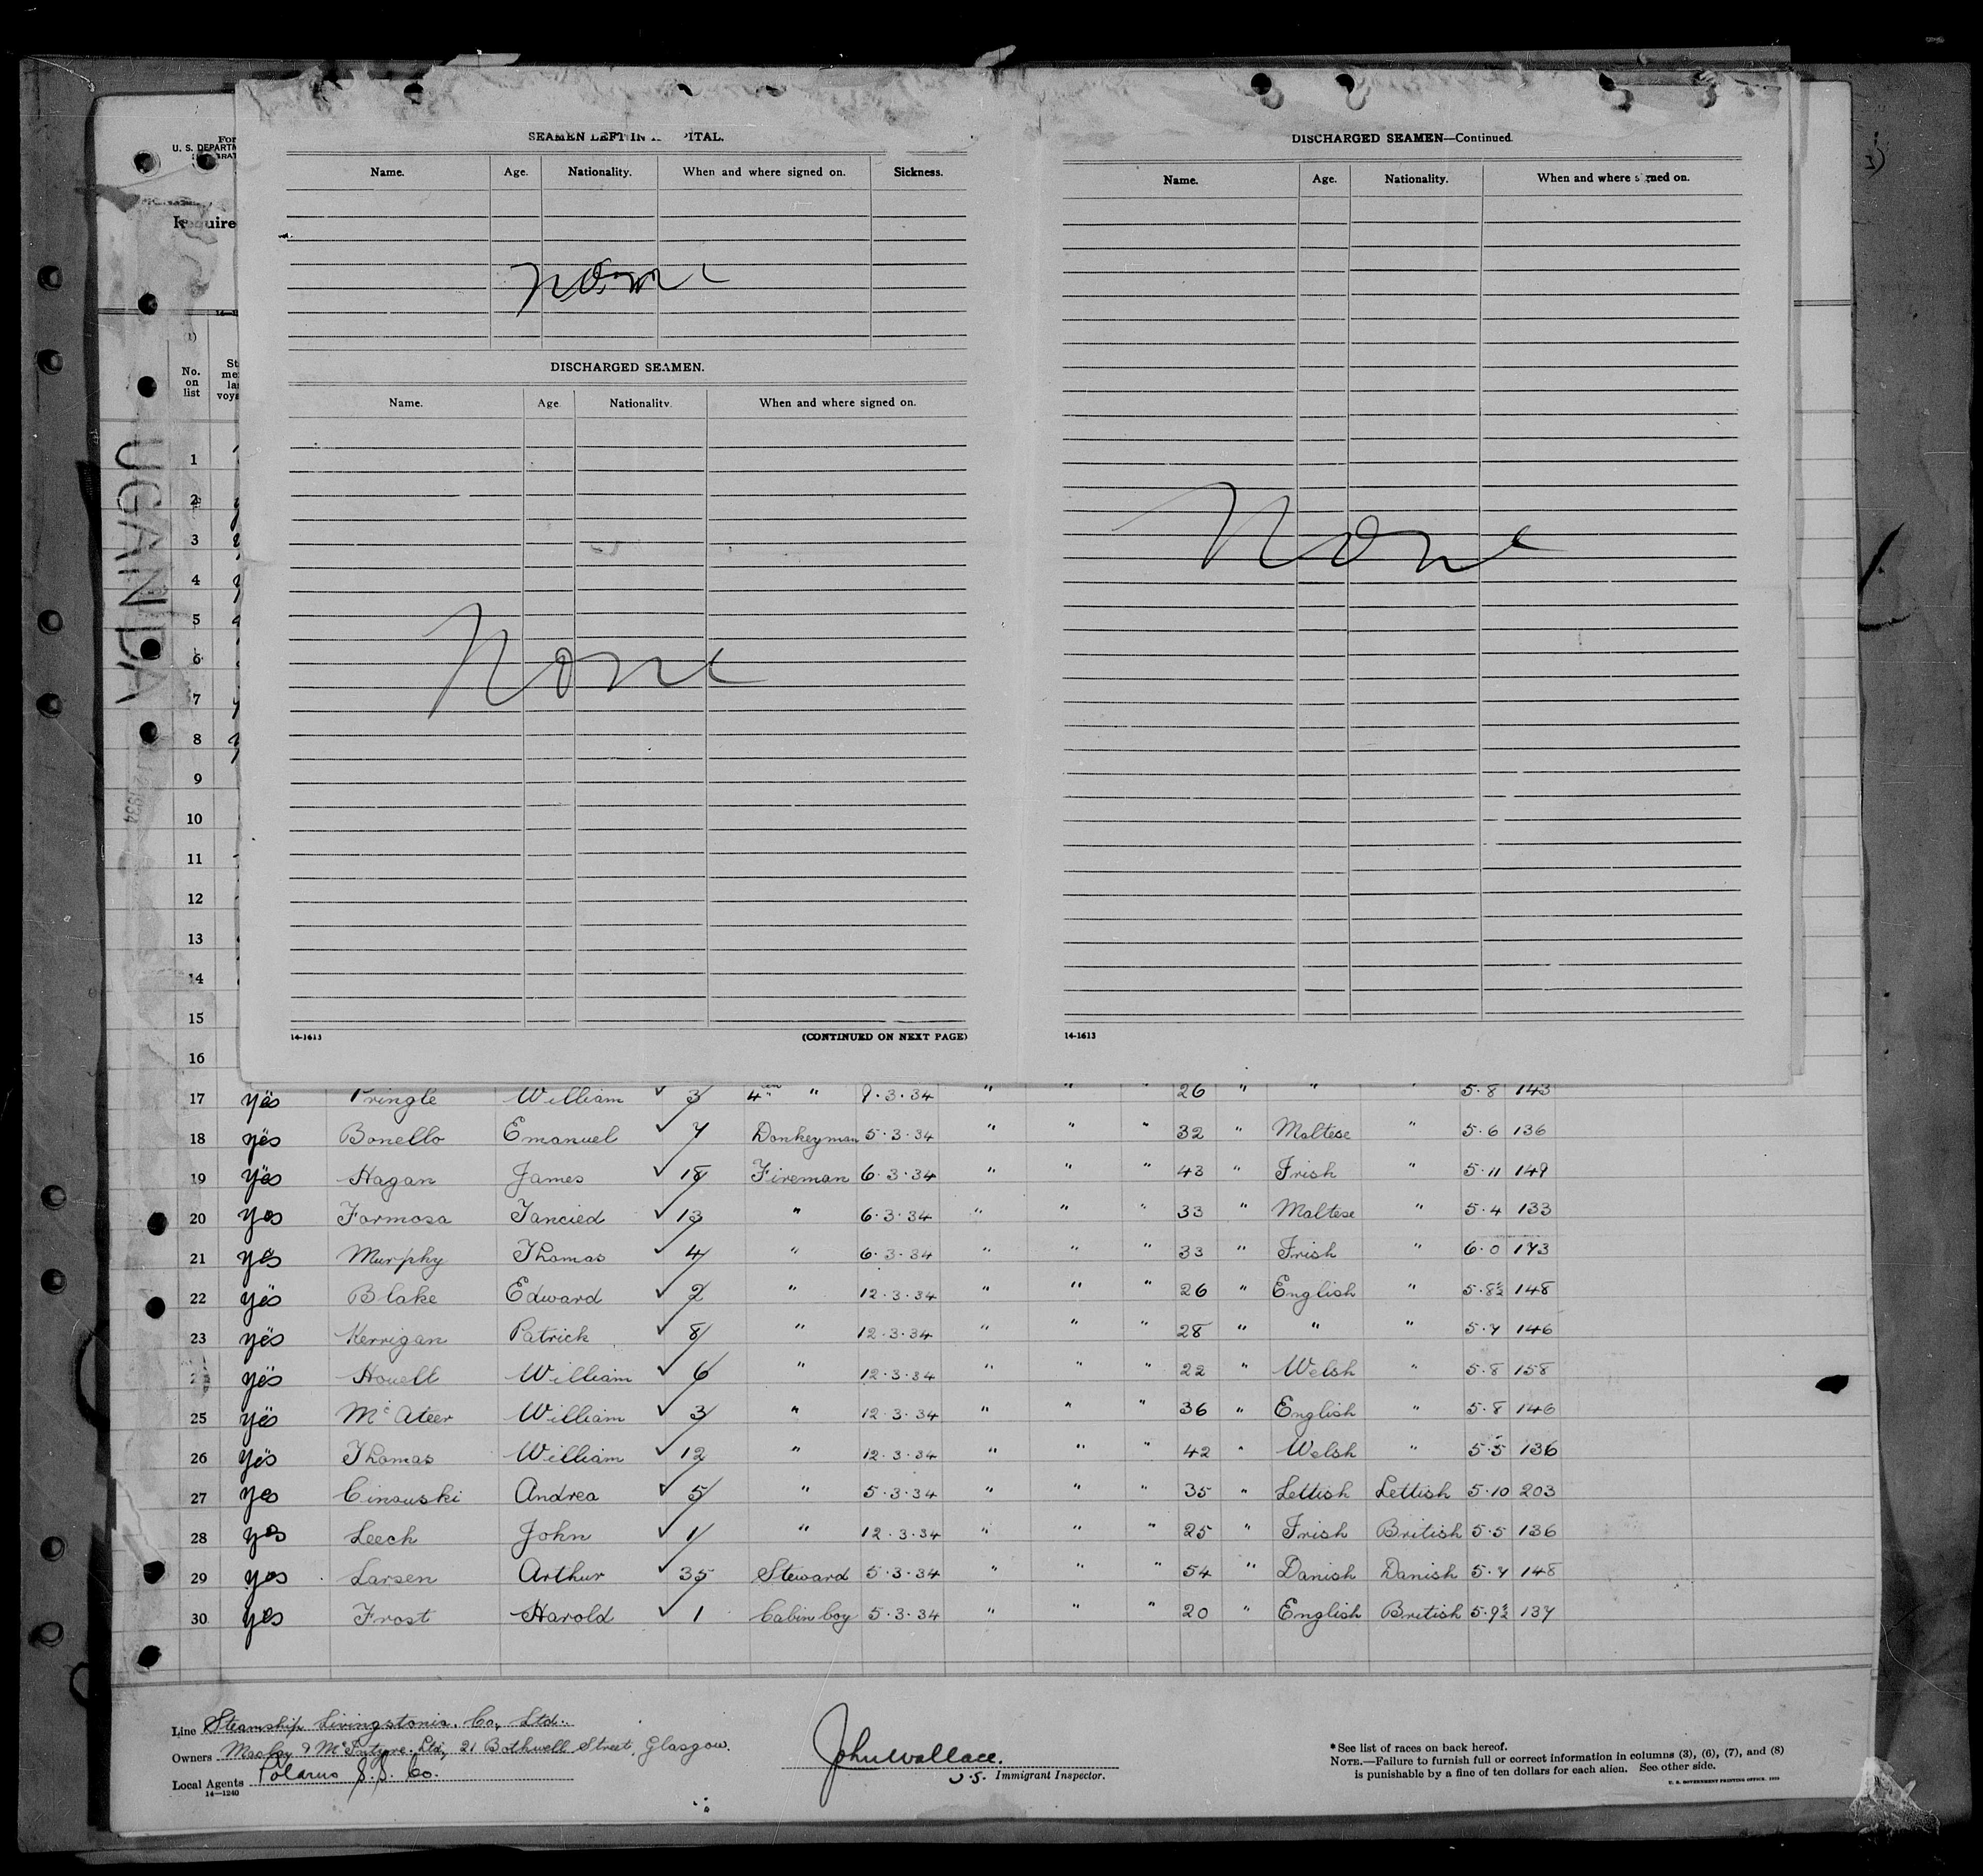 SEAMEN LEFT IN PITAL.
Name. Age. Nationality. When and where signed on. Sickness.
None
DISCHARGED SEAMEN.
Name. Age. Nationality. When and where signed on.
None
14-1613 (CONTINUED ON NEXT PAGE)
DISCHARGED SEAMEN—Continued.
Name. Age. Nationality. When and where signed on.
None
14-1613
For
U. S. DEPARTM
No. on list
UGANDA
1
2
3
4
5
6
7
8
9
10
11
12
13
14
15
16
17 yes Pringle William ✓ 3 4th " 9.3.34 " " " 26 " " " 5.8 143
18 yes Bonello Emanuel ✓ 7 Donkeyman 5.3.34 " " " 32 " Maltese " 5.6 136
19 yes Hagan James ✓ 18 Fireman 6.3.34 " " " 43 " Irish " 5.11 149
20 yes Formosa Tancied ✓ 13 " 6.3.34 " " " 33 " Maltese " 5.4 133
21 yes Murphy Thomas ✓ 4 " 6.3.34 " " " 33 " Irish " 6.0 173
22 yes Blake Edward ✓ 2 " 12.3.34 " " " 26 " English " 5.8½ 148
23 yes Kerrigan Patrick ✓ 8 " 12.3.34 " " " 28 " " " 5.7 146
yes Howell William ✓ 6 " 12.3.34 " " " 22 " Welsh " 5.8 158
25 yes McAteer William ✓ 3 " 12.3.34 " " " 36 " English " 5.8 146
26 yes Thomas William ✓ 12 " 12.3.34 " " " 42 " Welsh " 5.5 136
27 yes Cinouski Andrea ✓ 5 " 5.3.34 " " " 35 " Lettish Lettish 5.10 203
28 yes Leech John ✓ 1 " 12.3.34 " " " 25 " Irish British 5.5 136
29 yes Larsen Arthur ✓ 35 Steward 5.3.34 " " " 54 " Danish Danish 5.7 148
30 yes Frost Harold ✓ 1 Cabin boy 5.3.34 " " " 20 " English British 5.9½ 137
Line Steamship Livingstonia. Co, Ltd.
Owners Maclay & McIntyre. Ltd, 21 Bothwell Street, Glasgow.
Local Agents Polarus S.S. Co.
14—1240
John Wallace.
U.S. Immigrant Inspector.
*See list of races on back hereof.
NOTE.—Failure to furnish full or correct information in columns (3), (6), (7), and (8)
is punishable by a fine of ten dollars for each alien. See other side.